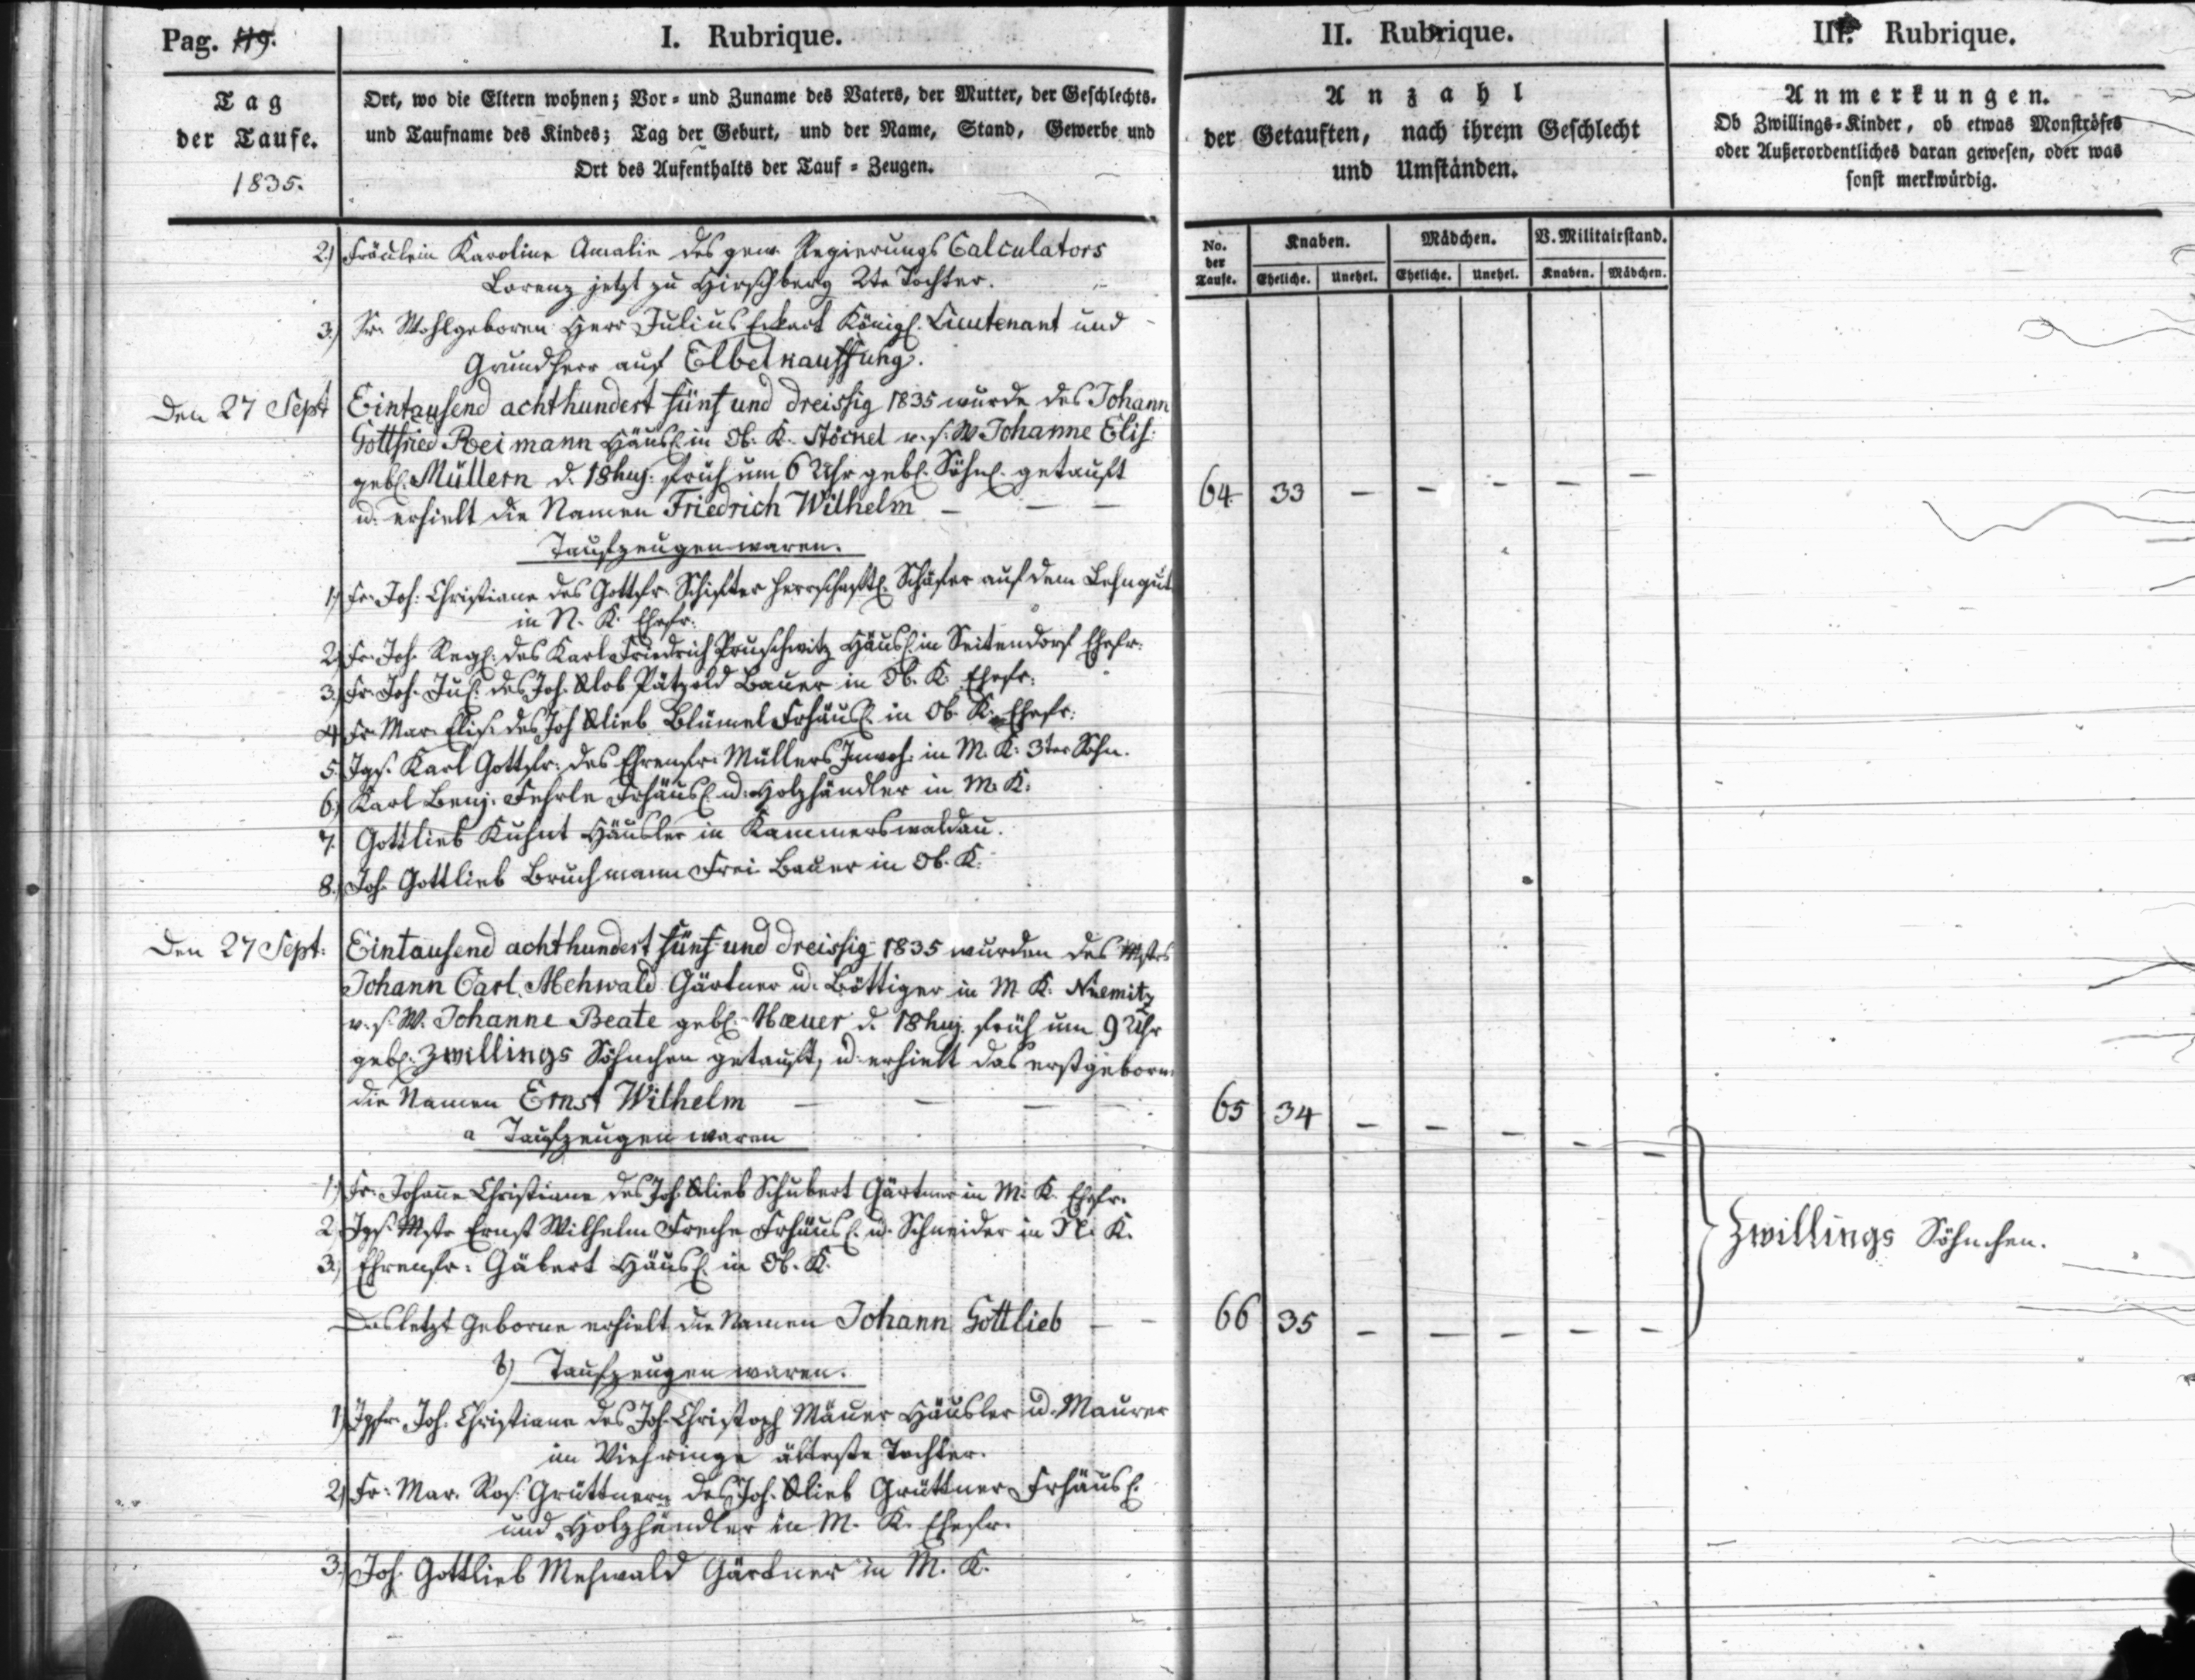 Pag. 119.
I. Rubrique.
II. Rubrique.
III. Rubrique.
Tag
der Taufe.
1835.
Ort, wo die Eltern wohnen; Vor- und Zuname des Vaters, der Mutter, der Geschlechts-
und Taufname des Kindes; Tag der Geburt, und der Name, Stand, Gewerbe und
Ort des Aufenthalts der Tauf-Zeugen.
Anzahl
der Getauften, nach ihrem Geschlecht
und Umständen.
Anmerkungen.
Ob Zwillings-Kinder, ob etwas Monströses
oder Außerordentliches daran gewesen, oder was
sonst merkwürdig.
No. der Taufe.
Knaben.
Mädchen.
V. Militairstand.
Eheliche. Unehel. Eheliche. Unehel. Knaben. Mädchen.
2.) Fräulein Karoline Amalie des gew. Regierungs Calculators
Lorenz jetzt zu Hirschberg 2te Tochter.
3.) Sr. Wohlgeboren Herr Julius Eckart Königl. Lieutenant und
Grundherr auf Elbelkauffung.
Den 27 Sept Eintausend achthundert fünf und dreissig 1835 wurde des Johann
Gottfried Reimann Häusl. in Ob. K. Stöckel v. s. W Johanne Elis:
gebl. Müllern d. 18 huj. früh um 6 Uhr gebl. Söhnl. getauft
u. erhielt die Namen Friedrich Wilhelm — — —
64 33 — — — — —
Taufzeugen waren.
1.) Fr. Joh: Christiane des Gottfr. Schifter herrschaftl. Schäfer auf dem Lehngut
in N. K. Ehefr.
2.) Fr. Joh. Regl. des Karl Friedrich Pruschwitz Häusl. in Seitendorf Ehefr.
3.) Fr. Joh. Jul. des Joh. Glob Pätzold Bauer in Ob. K. Ehefr.
4. Fr. Mar. Elis. des Joh Glieb Blümel Frhäusl. in Ob. K. Ehefr:
5. Jgs. Karl Gottfr. des Ehrenfr. Müllers Inwoh. in M. K. 3ter Sohn.
6.) Karl Benj. Fehrle Frhäusl. u. Holzhändler in M. K.
7. Gottlieb Kuhnt Häusler in Kammerswaldau.
8.) Joh. Gottlieb Bruchmann Frei Bauer in Ob. K.
Den 27 Sept: Eintausend achthundert fünf und dreissig 1835 wurden des Mstrs
Johann Carl Mehwald Gärtner u. Böttiger in M. K. Niemitz
v. s. W. Johanne Beate gebl. d. 18 huj. früh um 9 Uhr
gebl. Zwillings Söhnchen getauft, u. erhielt das erstgeborn.
die Namen Ernst Wilhelm — — — —
65 34 — — — — —
a Taufzeugen waren
1.) Fr. Johanne Christiane des Joh. Glieb Schubert Gärtner in M. K. Ehefr.
2. Jgs. Mstr Ernst Wilhelm Freche Frhäusl. u. Schneider in N. K.
3.) Ehrenfr: Gäbert Häusl. in Ob. K.
Zwillings Söhnchen.
Das letzt Geborne erhielt die Namen Johann Gottlieb — —
66 35 — — — — —
b) Taufzeugen waren.
1) Jgfr. Joh. Christiane des Joh. Christoph Mäuer Häusler u. Maurer
im Viehringe älteste Tochter.
2) Fr: Mar. Ros. Grüttnern des Joh. Glieb Grüttner Frhäusl.
und Holzhändler in M. K. Ehefr.
3.) Joh. Gottlieb Mehwald Gärtner in M. K.